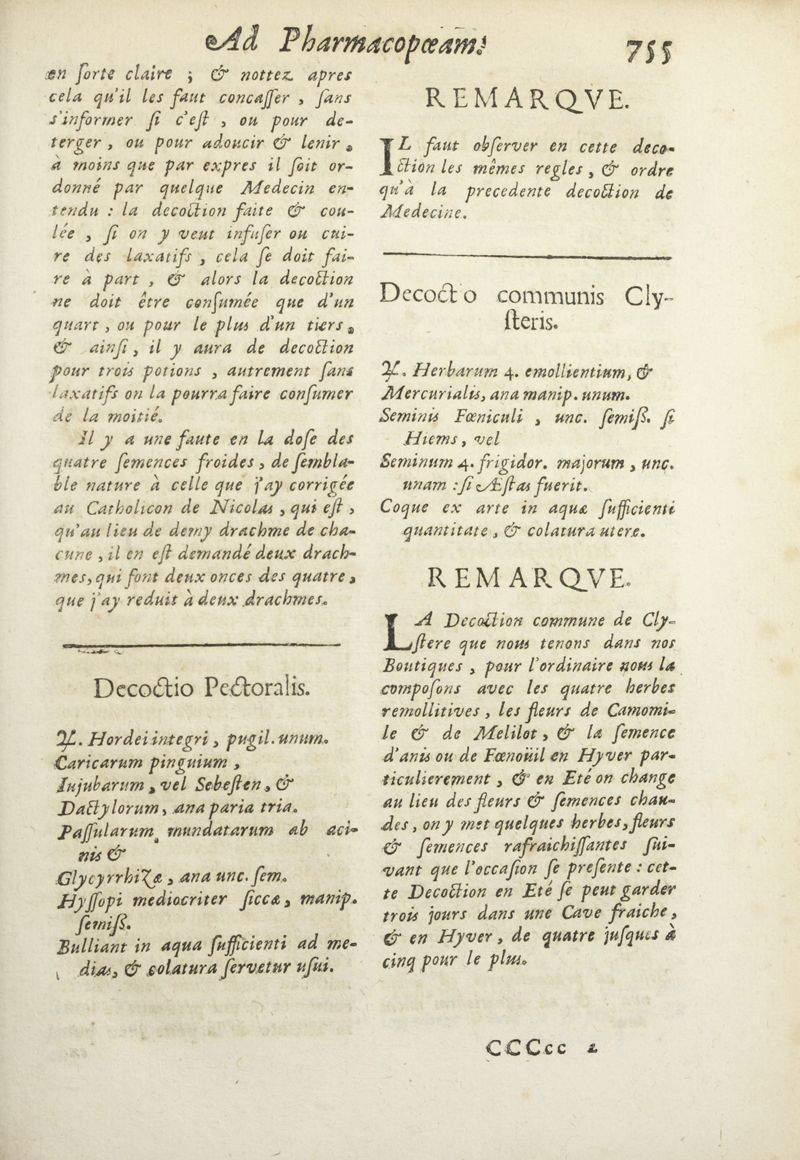 Ad Pharmacopœam.
755
en ſorte claire ; & nottez apres
cela qu'il les faut concaſſer , ſans
s'informer ſi c'eſt , ou pour de-
terger , ou pour adoucir & lenir ,
à moins que par expres il ſoit or-
donné par quelque Medecin en-
tendu : la decoction faite & cou-
lée , ſi on y veut infuſer ou cui-
re des laxatifs , cela ſe doit fai-
re à part , & alors la decoction
ne doit être conſumée que d'un
quart , ou pour le plus d'un tiers ,
& ainſi , il y aura de decoction
pour trois potions , autrement ſans
laxatifs on la pourra faire conſumer
de la moitié.
Il y a une faute en la doſe des
quatre ſemences froides , de ſembla-
ble nature à celle que j'ay corrigée
au Catholicon de Nicolas , qui eſt ,
qu'au lieu de demy drachme de cha-
cune , il en eſt demandé deux drach-
mes, qui font deux onces des quatre ,
que j'ay reduit à deux drachmes.
Decoctio Pectoralis.
℞. Hordei integri , pugil. unum.
Caricarum pinguium ,
Iujubarum , vel Sebeſten , &
Dactylorum , ana paria tria.
Paſſularum mundatarum ab aci-
nis &
Glycyrrhizæ , ana unc. ſem.
Hyſſopi mediocriter ſiccæ , manip.
ſemiſſ.
Bulliant in aqua ſufficienti ad me-
dias, & colatura ſervetur uſui.
REMARQVE.
IL faut obſerver en cette deco-
ction les mêmes regles , & ordre
qu'à la precedente decoction de
Medecine.
Decoct o communis Cly-
ſteris.
℞. Herbarum 4. emollientium, &
Mercurialis, ana manip. unum.
Seminis Fœniculi , unc. ſemiſſ. ſi
Hiems , vel
Seminum 4. frigidor. majorum , unc.
unam : ſi Æſtas fuerit.
Coque ex arte in aquæ ſufficienti
quantitate , & colatura utere.
REMARQVE.
LA Decoction commune de Cly-
ſtere que nous tenons dans nos
Boutiques , pour l'ordinaire nous la
compoſons avec les quatre herbes
remollitives , les fleurs de Camomi-
le & de Melilot , & la ſemence
d'anis ou de Fœnoüil en Hyver par-
ticulierement , & en Eté on change
au lieu des fleurs & ſemences chau-
des , on y met quelques herbes, fleurs
& ſemences rafraichiſſantes ſui-
vant que l'occaſion ſe preſente : cet-
te Decoction en Eté ſe peut garder
trois jours dans une Cave fraiche ,
& en Hyver , de quatre juſques à
cinq pour le plus.
CCCcc 2